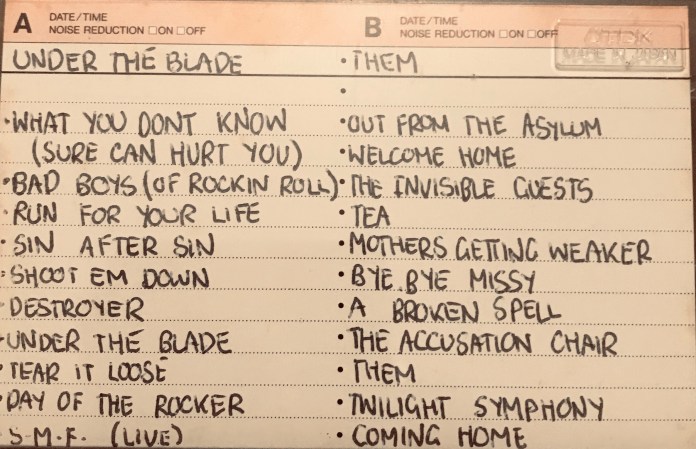 A DATE/TIME
NOISE REDUCTION □ON □OFF
B DATE/TIME
NOISE REDUCTION □ON □OFF
TDK
MADE IN JAPAN
UNDER THE BLADE
•WHAT YOU DONT KNOW
(SURE CAN HURT YOU)
•BAD BOYS (OF ROCKIN ROLL)
•RUN FOR YOUR LIFE
•SIN AFTER SIN
•SHOOT EM DOWN
•DESTROYER
•UNDER THE BLADE
•TEAR IT LOOSE
•DAY OF THE ROCKER
•S.M.F. (LIVE)
•THEM
•
•OUT FROM THE ASYLUM
•WELCOME HOME
•THE INVISIBLE GUESTS
•TEA
•MOTHERS GETTING WEAKER
•BYE.BYE MISSY
•A BROKEN SPELL
•THE ACCUSATION CHAIR
•THEM
•TWILIGHT SYMPHONY
•COMING HOME